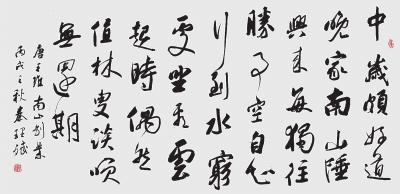 中歲頗好道
晚家南山陲
興來每獨往
勝事空自知
行到水窮
處坐看雲
起時偶然
值林叟談笑
無還期
唐王維南山別業
丙戌之秋